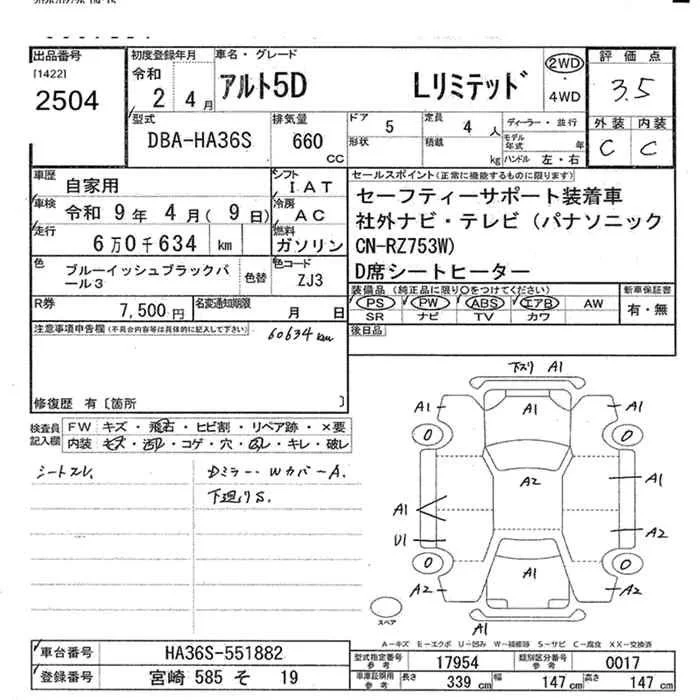 出品番号
[1422]
2504
初度登録年月
令和
2 4 月
車名・グレード
アルト5D Lリミテッド
2WD
・
4WD
評価点
3.5
外装 内装
C C
型式
DBA-HA36S
排気量
660
CC
ドア
5
定員
4 人
形状
積載
kg
ディーラー・並行
モデル年式 年
ハンドル 左・右
車歴
自家用
シフト
IAT
車検
令和 9 年 4 月( 9 日)
冷房
AC
走行
6万0千634 km
燃料
ガソリン
色
ブルーイッシュブラックパール3
色替
色コード
ZJ3
R券
7,500 円
名変通知期限
月 日
セールスポイント(正常に機能するものに限ります)
セーフティーサポート装着車
社外ナビ・テレビ(パナソニック
CN-RZ753W)
D席シートヒーター
装備品 (純正品に限り○をつけてください)
PS PW ABS エアB AW
SR ナビ TV カワ
新車保証書
有・無
後日品
注意事項申告欄(不具合内容等は具体的に記入して下さい)
60634 km
修復歴 有〔箇所 〕
検査員
記入欄
FW キズ・飛石・ヒビ割・リペア跡・×要
内装 キズ・汚レ・コゲ・穴・凹レ・キレ・破レ
シートスレ、
Dミラー・WカバーA.
下廻りS.
下ズリ A1
A1 A1
0 0
A2
A1
A1
A2
U1
0 0
A2 A2
A1
A1
スペア
A-キズ E-エクボ U-凹み W-補修跡 S-サビ C-腐食 XX-交換済
車台番号
HA36S-551882
登録番号
宮崎 585 そ 19
型式指定番号
参考
17954
類別区分番号
参考
0017
車庫証明用
参考
長さ 339 cm 幅 147 cm 高さ 147 cm